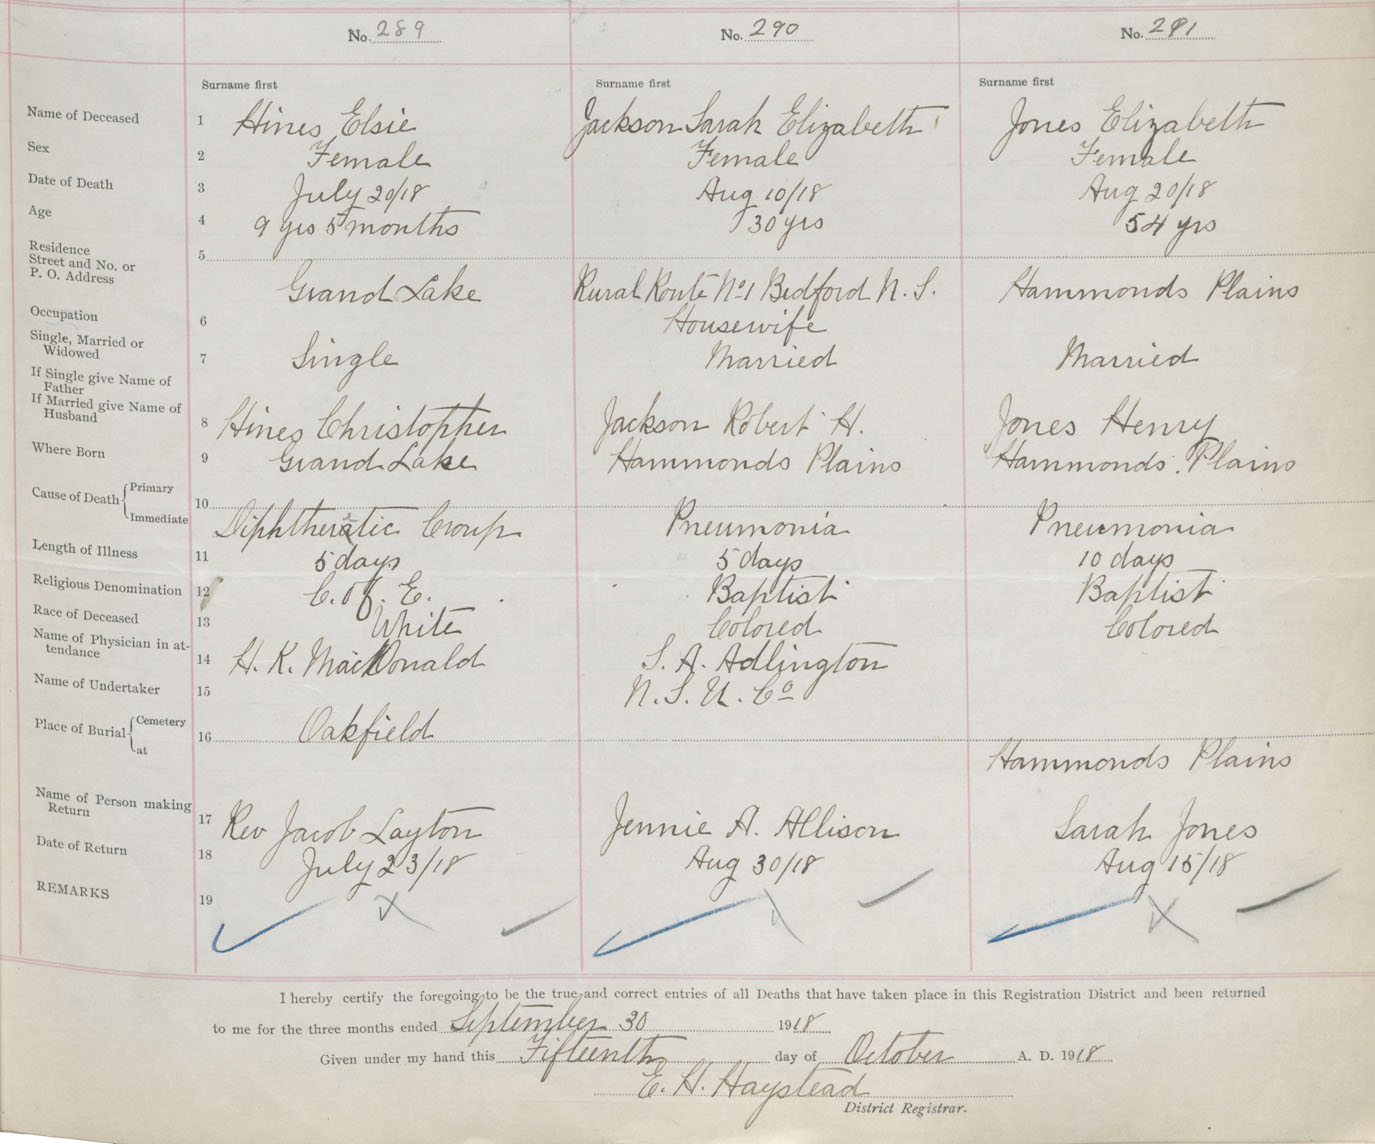 No. 289 No. 290 No. 291
Surname first Surname first Surname first
Name of Deceased 1 Hines Elsie Jackson Sarah Elizabeth Jones Elizabeth
Sex 2 Female Female Female
Date of Death 3 July 20/18 Aug 10/18 Aug 20/18
Age 4 9 yrs 5 months 30 yrs 54 yrs
Residence
Street and No. or 5
P. O. Address Grand Lake Rural Route No 1 Bedford N. S. Hammonds Plains
Occupation 6 Housewife
Single, Married or
Widowed 7 Single Married Married
If Single give Name of
Father
If Married give Name of
Husband 8 Hines Christopher Jackson Robert H. Jones Henry
Where Born 9 Grand Lake Hammonds Plains Hammonds Plains
Cause of Death { Primary 10
Immediate Diphtheritic Croup Pneumonia Pneumonia
Length of Illness 11 5 days 5 days 10 days
Religious Denomination 12 C. of. E. Baptist Baptist
Race of Deceased 13 White Colored Colored
Name of Physician in at-
tendance 14 H. K. MacDonald S. A. Adlington
Name of Undertaker 15 N. S. U. Co
Place of Burial { Cemetery 16 Oakfield
at Hammonds Plains
Name of Person making
Return 17 Rev Jacob Layton Jennie A. Allison Sarah Jones
Date of Return 18 July 23/18 Aug 30/18 Aug 15/18
REMARKS 19
I hereby certify the foregoing to be the true and correct entries of all Deaths that have taken place in this Registration District and been returned
to me for the three months ended September 30 1918
Given under my hand this Fifteenth day of October A. D. 1918
E. H. Haystead
District Registrar.